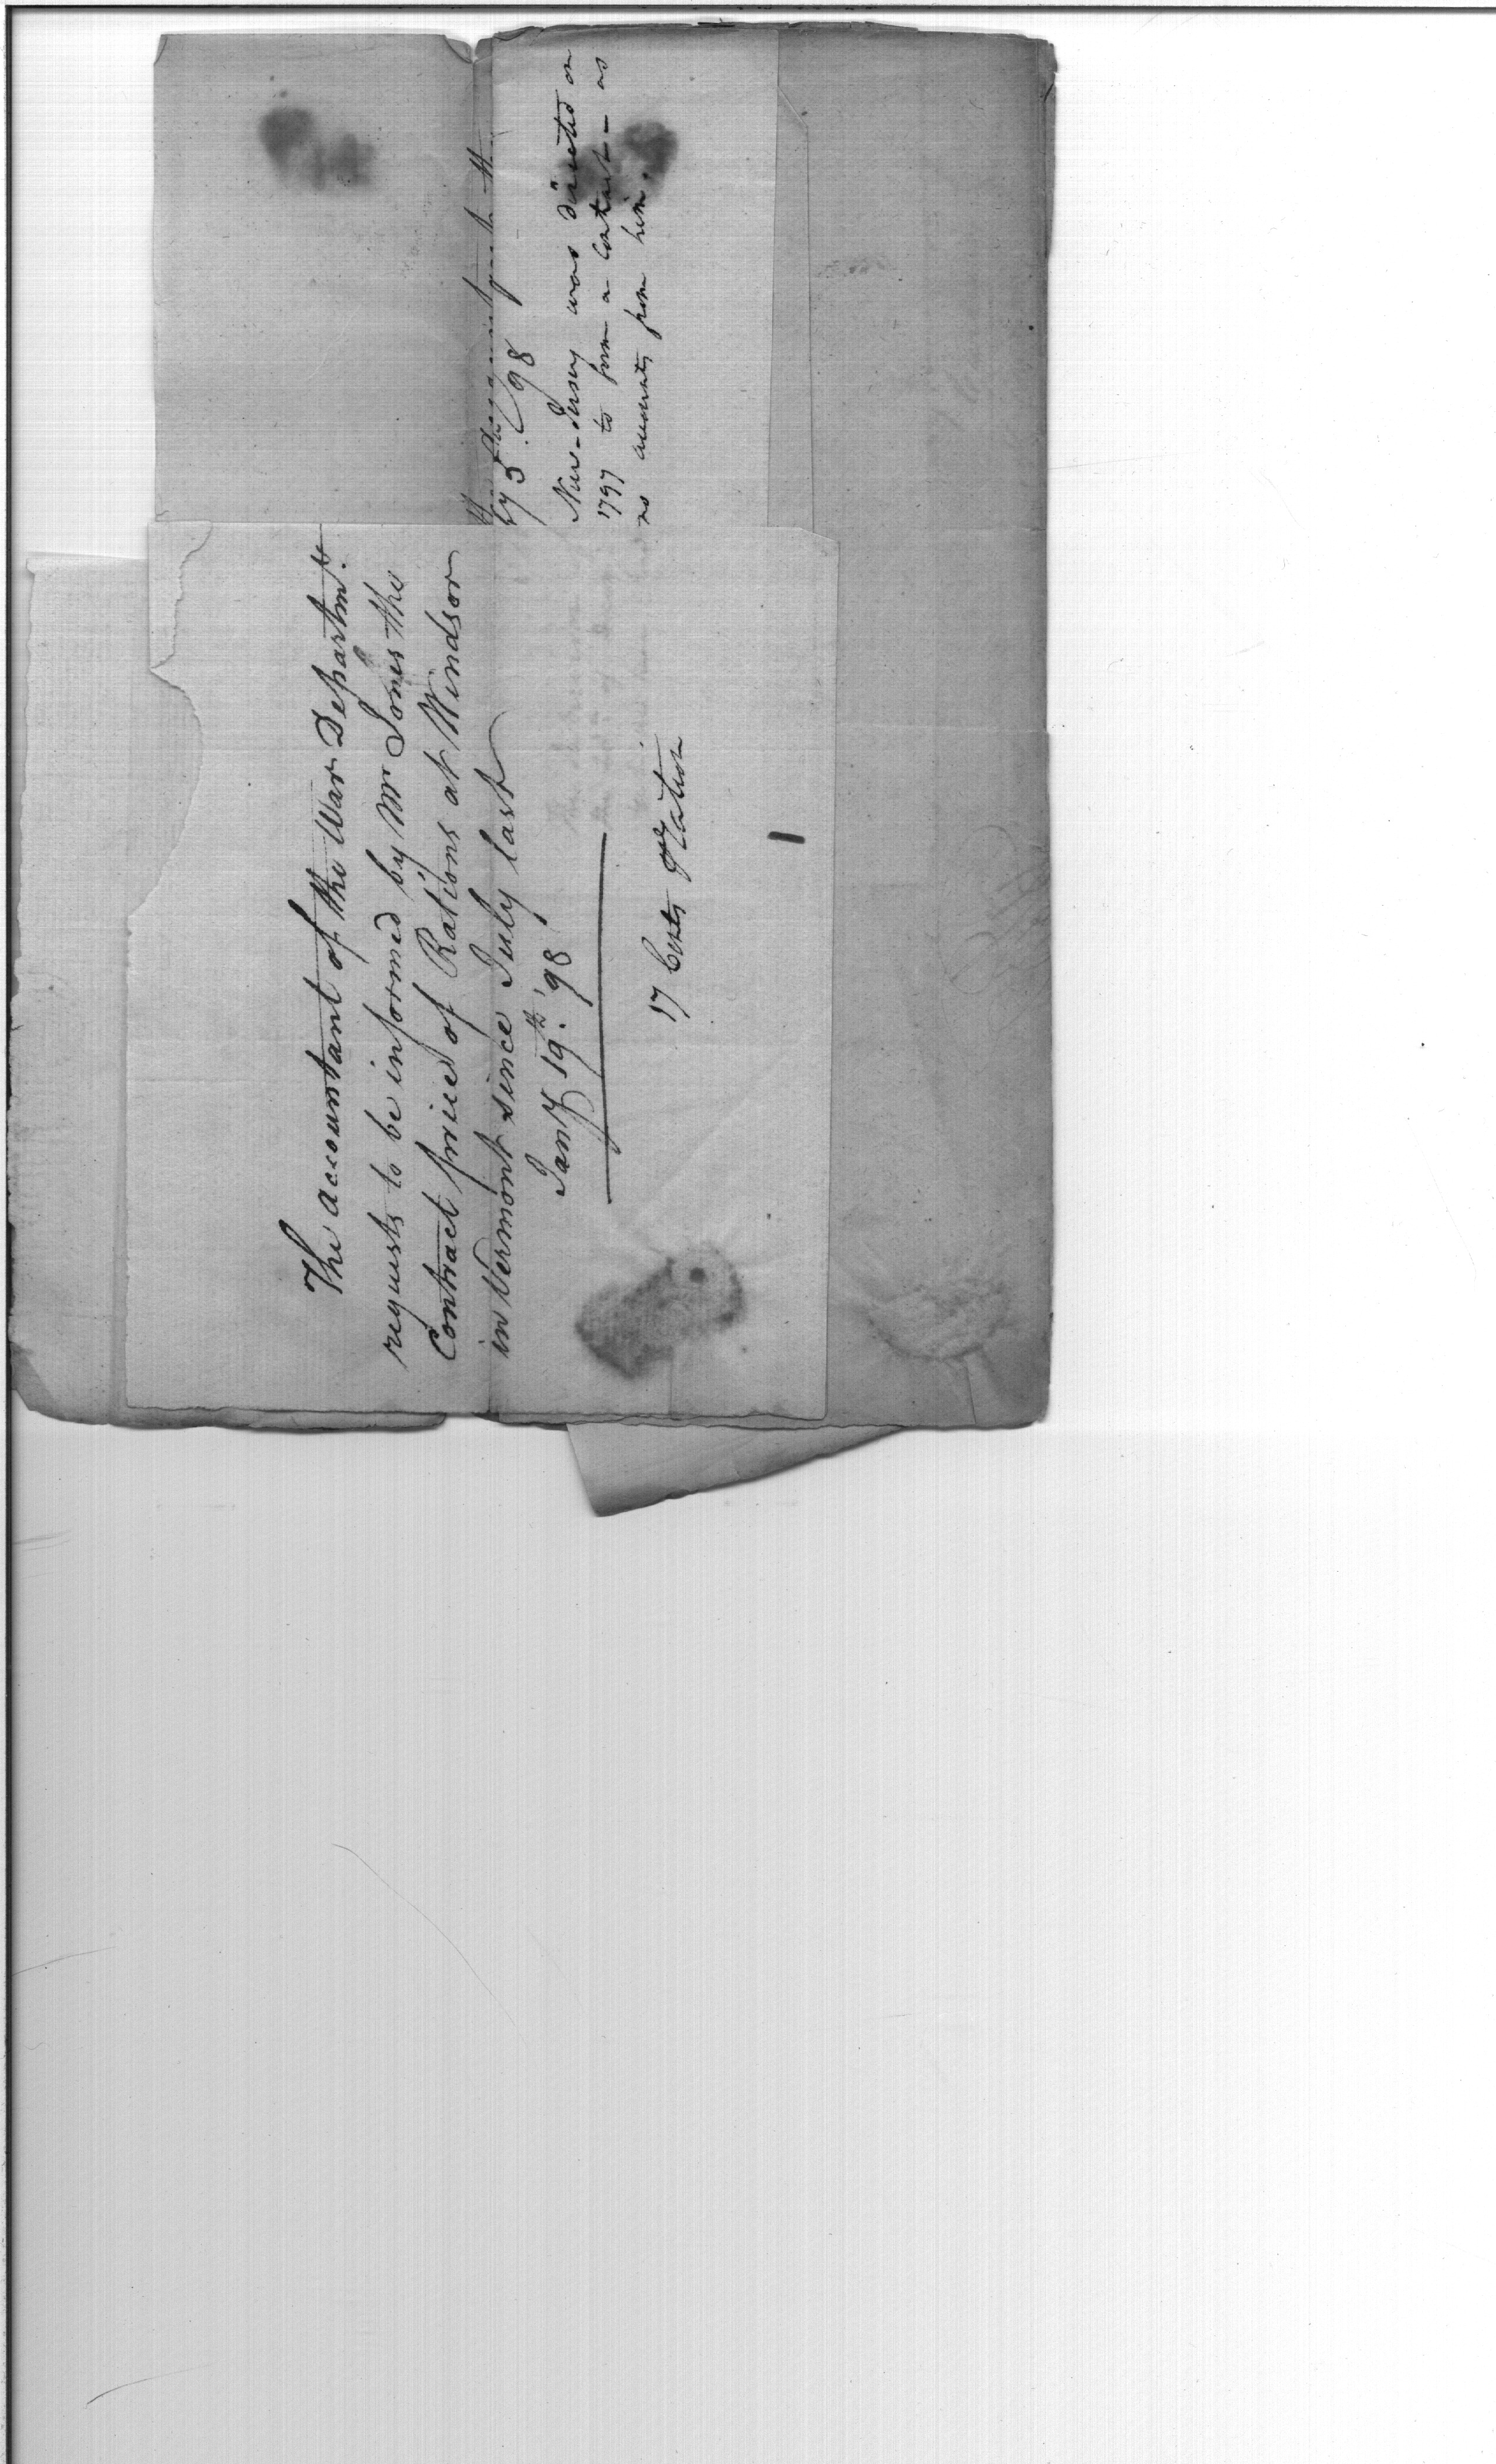 The Accountant of the War Departmt.
requests to be informed by Mr Jones the
Contract price of Rations at Windsor
in Vermont since July last
Jany 19th. '98
17 Cents ⅌ Ration
5 98
New-Jersey was directed on
1797 to form a Contract - as
no accounts from him.